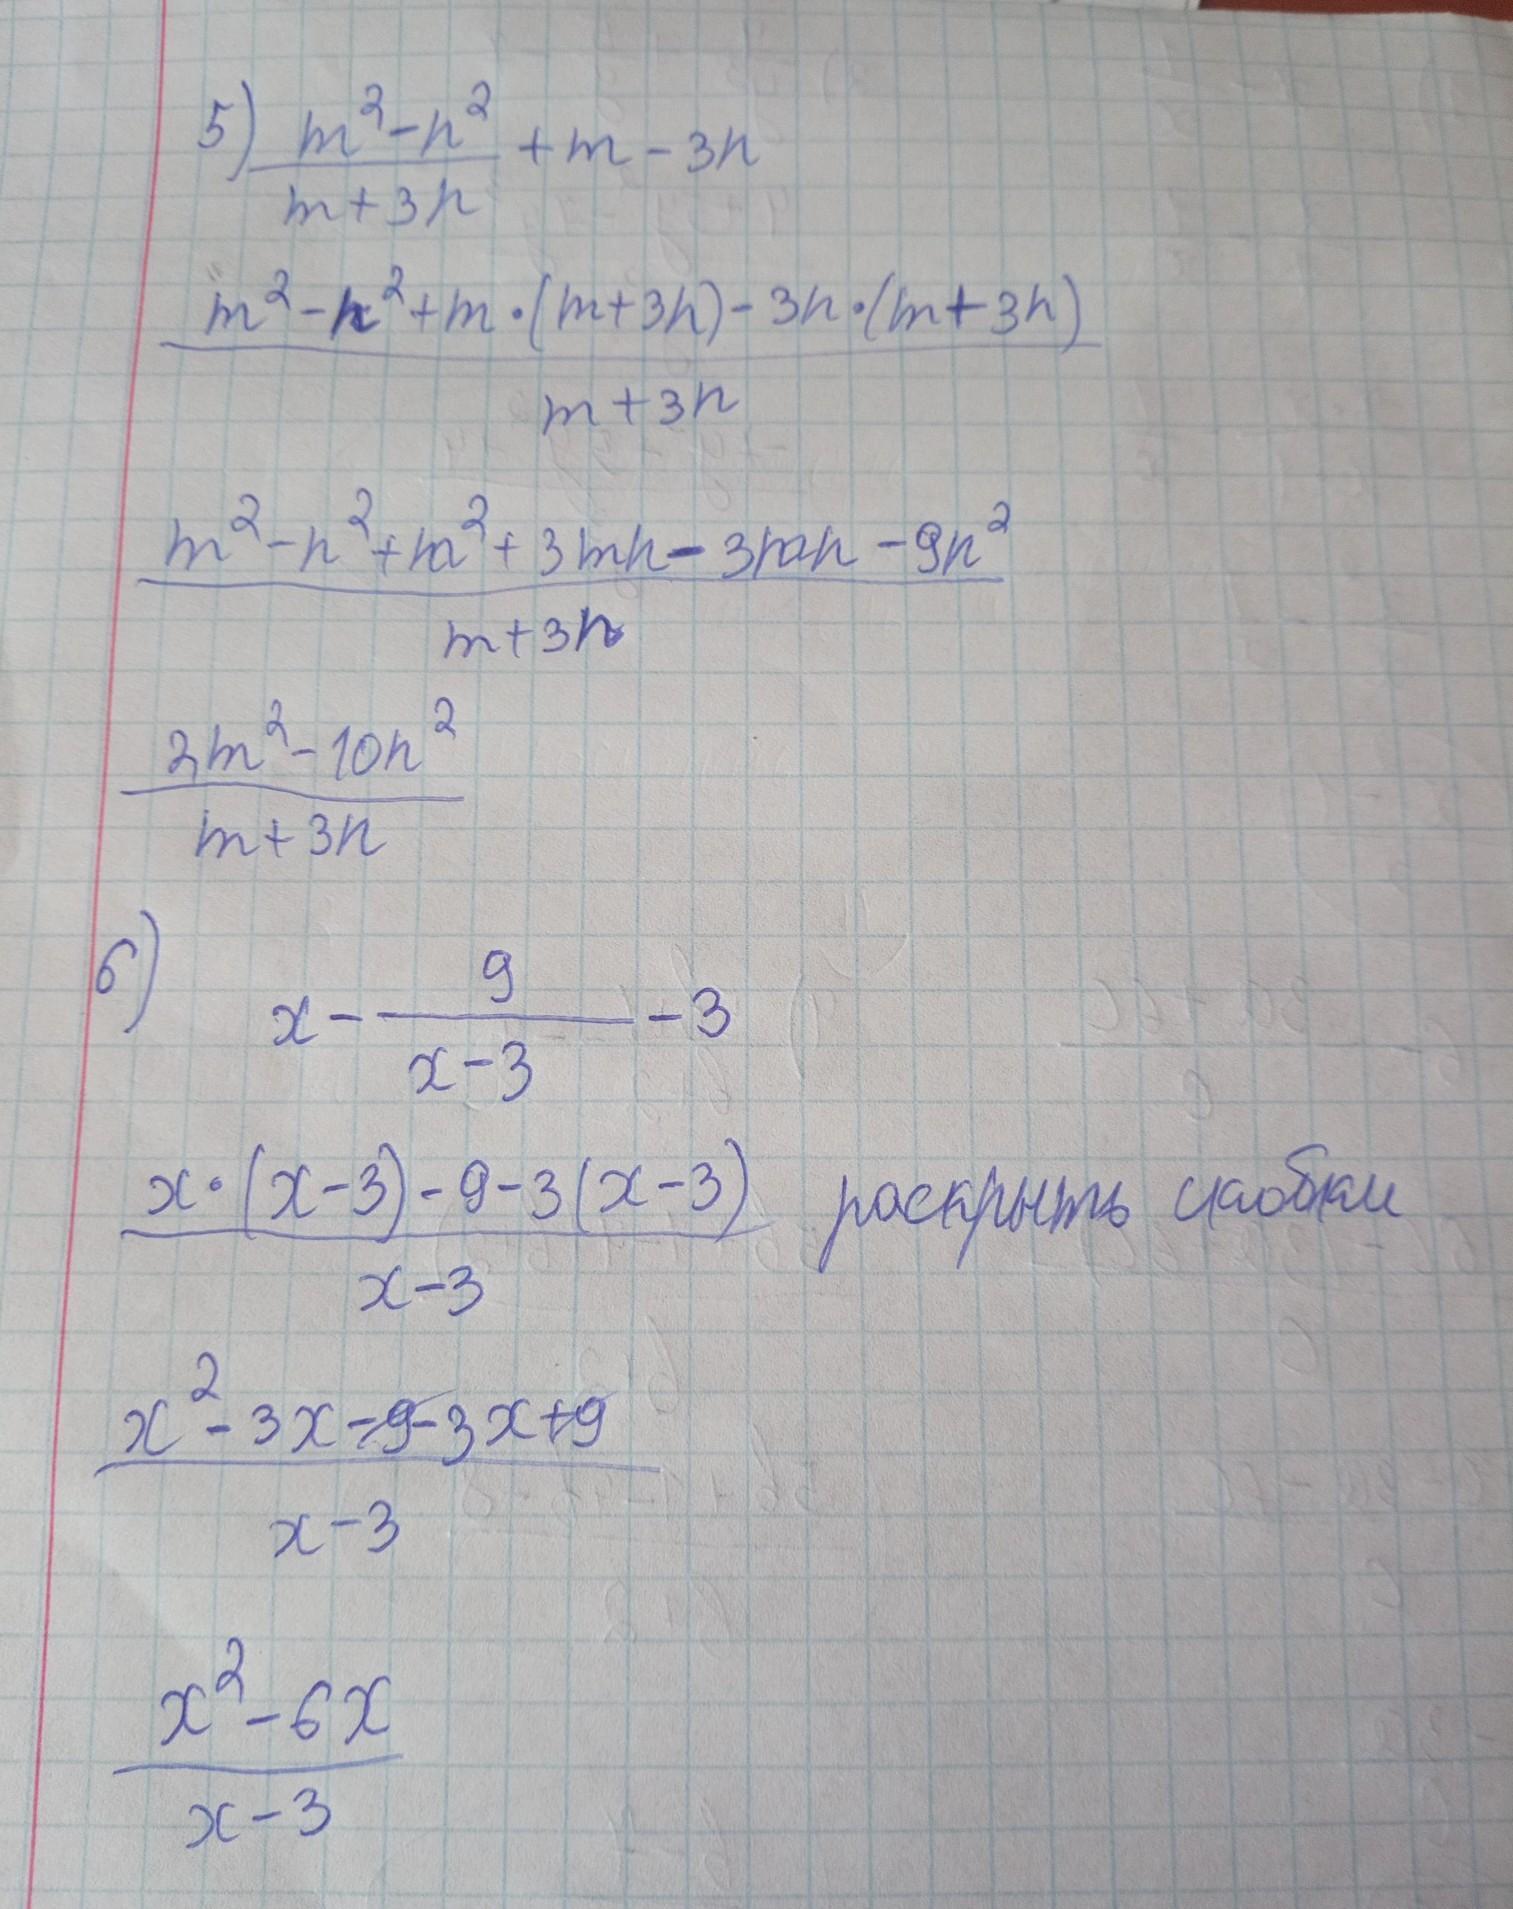 5) (m² - n²)/(m + 3n) + m - 3n
(m² - n² + m · (m + 3n) - 3n · (m + 3n))/(m + 3n)
(m² - n² + m² + 3mn - 3mn - 9n²)/(m + 3n)
(2m² - 10n²)/(m + 3n)
6) x - 9/(x - 3) - 3
(x · (x - 3) - 9 - 3(x - 3))/(x - 3) раскрыть скобки
(x² - 3x - 9 - 3x + 9)/(x - 3)
(x² - 6x)/(x - 3)